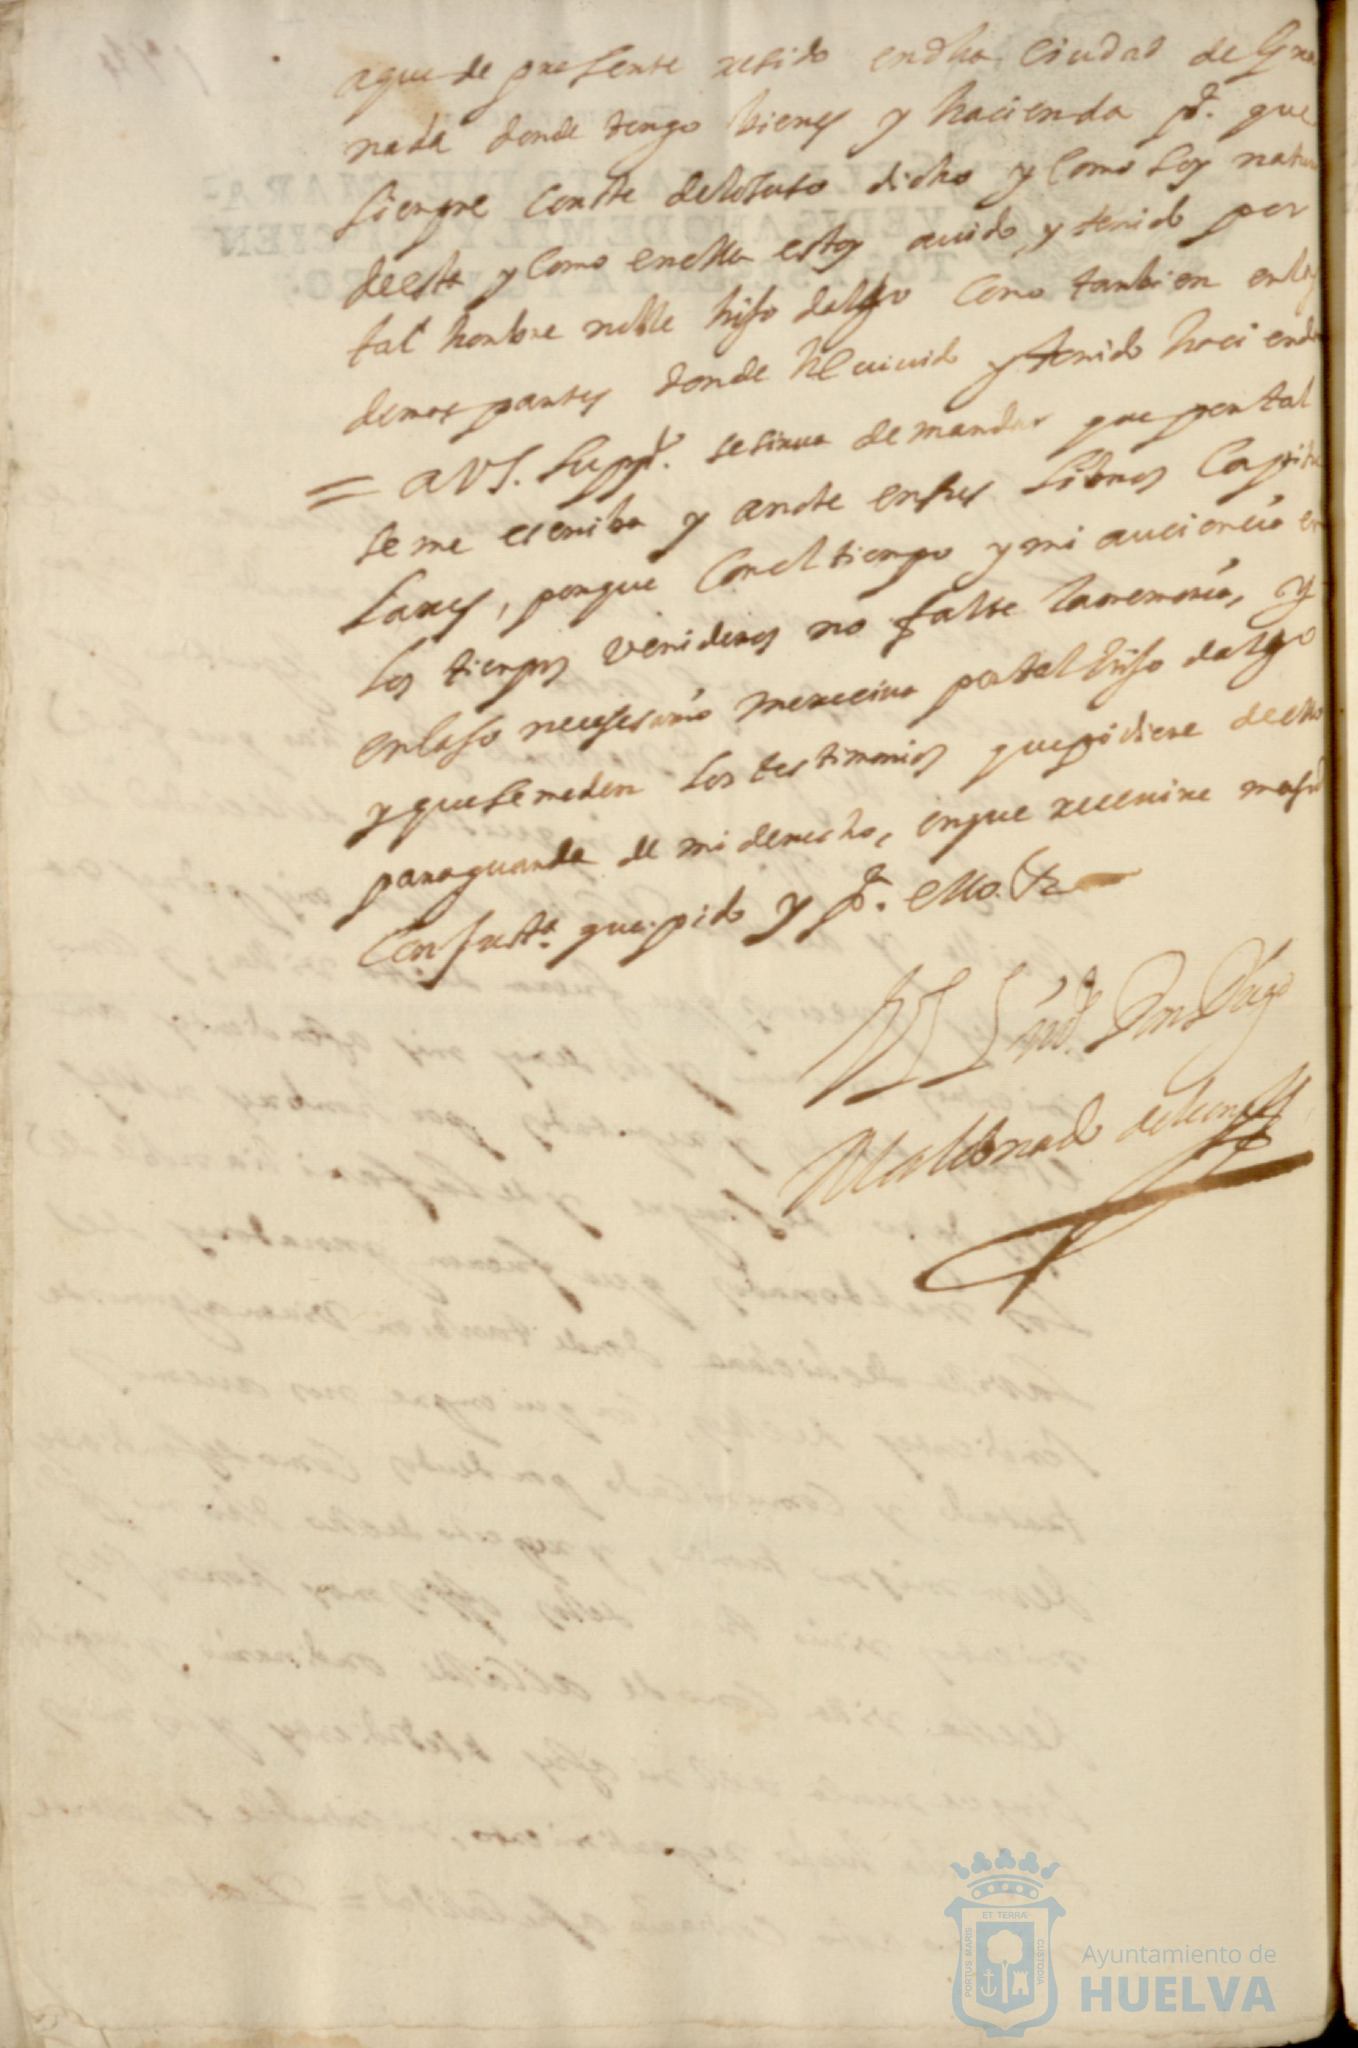 aque de presente resido en dha Ciudad de Gra
nada donde tengo bienes y hacienda pa. que
siempre conste delo suso dicho y Como Soy natur
de esta y Como en ella estoy auido y tenido por
tal hombre noble hijo dalgo Como tambien en las
demas partes donde he uiuido y tenido hacienda
= a VS. suppco. se sirua de mandar que por tal
se me escriba y anote en sus Libros Capitu
lares, porque Con el tiempo y mi auciencia en
los tiempos venideros no falte la memoria, y
en caso necessario me reciua por tal hijo dalgo
y que se me den los testimonios que pidiere de ello
para guarda de mi derecho, en que receuire mrsd
Con Justa. que pido y pa. ello. &
Don Diego
Maldonado de
ET TERRA
PORTUS MARIS
CUSTODIA
Ayuntamiento de
HUELVA